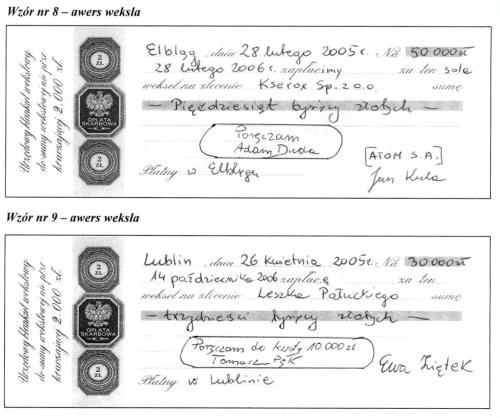 Wzór nr 8 – awers weksla
Urzędowy blankiet wekslowy
do sumy wekslowej nie prze-
kraczającej 2.000 zł.
2
ZŁ
OPŁATA
SKARBOWA
2
ZŁ
Elbląg, dnia 28 lutego 2005r. Na 50 000zł
28 lutego 2006r. zapłacimy za ten sola
weksel na zlecenie Kserox Sp. z o.o. sumę
— Pięćdziesiąt tysięcy złotych —
Poręczam
Adam Duda
[ATOM S.A.]
Jan Kula
Płatny w Elblągu
Wzór nr 9 – awers weksla
Urzędowy blankiet wekslowy
do sumy wekslowej nie prze-
kraczającej 2.000 zł.
2
ZŁ
OPŁATA
SKARBOWA
2
ZŁ
Lublin, dnia 26 kwietnia 2005r. Na 30 000zł
14 października 2006 zapłacę za ten
weksel na zlecenie Leszka Pałuckiego sumę
— trzydzieści tysięcy złotych —
Poręczam do kwoty 10.000zł
Tomasz Pęk
Ewa Ziętek
Płatny w Lublinie